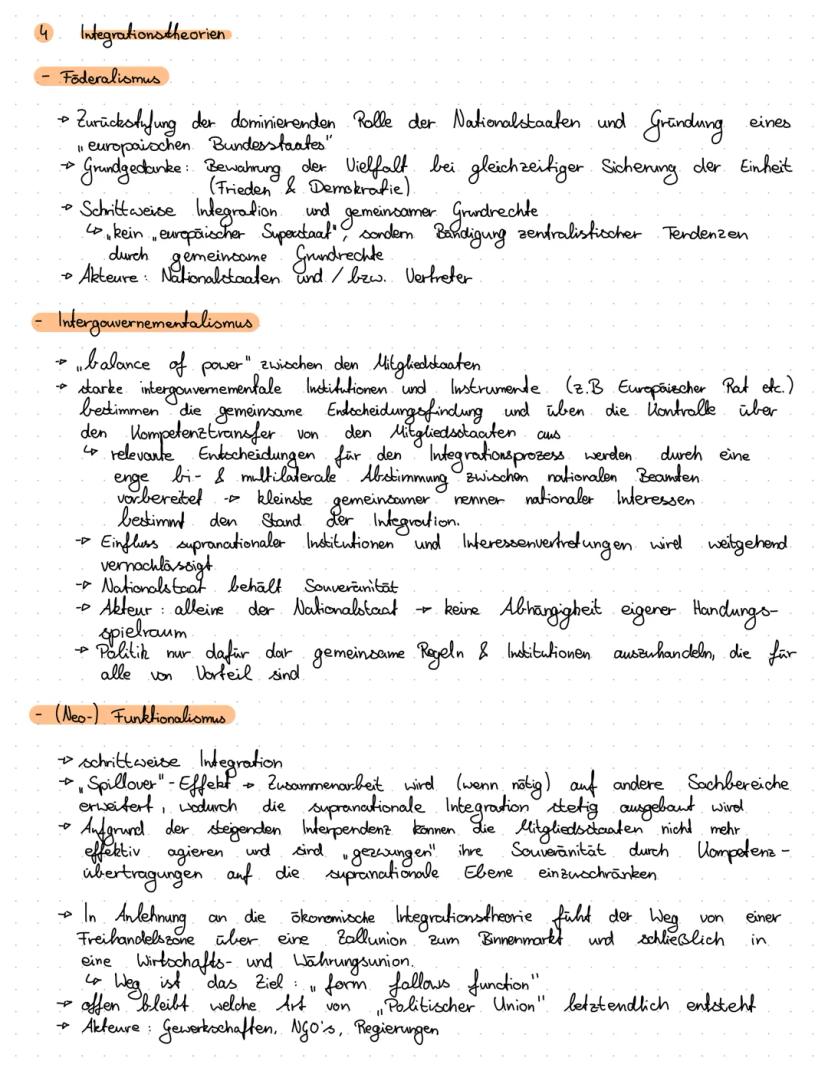 4 Integrationstheorien
- Föderalismus
→ Zurückstufung der dominierenden Rolle der Nationalstaaten und Gründung eines
„europäischen Bundesstaates"
→ Grundgedanke: Bewahrung der Vielfalt bei gleichzeitiger Sicherung der Einheit
(Frieden & Demokratie)
→ Schrittweise Integration und gemeinsamer Grundrechte
↳ „kein „europäischer Superstaat", sondern Bändigung zentralistischer Tendenzen
durch gemeinsame Grundrechte
→ Akteure: Nationalstaaten und / bzw. Vertreter
- Intergouvernementalismus
→ „balance of power" zwischen den Mitgliedstaaten
→ starke intergouvernementale Institutionen und Instrumente (z.B Europäischer Rat etc.)
bestimmen die gemeinsame Entscheidungsfindung und üben die Kontrolle über
den Kompetenztransfer von den Mitgliedsstaaten aus
↳ relevante Entscheidungen für den Integrationsprozess werden durch eine
enge bi- & multilaterale Abstimmung zwischen nationalen Beamten
vorbereitet → kleinste gemeinsamer nenner nationaler Interessen
bestimmt den Stand der Integration.
→ Einfluss supranationaler Institutionen und Interessenvertretungen wird weitgehend
vernachlässigt
→ Nationalstaat behält Souveränität
→ Akteur: alleine der Nationalstaat → keine Abhängigheit eigener Handungs-
spielraum
→ Politik nur dafür dar gemeinsame Regeln & Institutionen auszuhandeln, die für
alle von Vorteil sind
- (Neo-) Funktionalismus
→ schrittweise Integration
→ „Spillover"-Effekt → Zusammenarbeit wird (wenn nötig) auf andere Sachbereiche
erweitert, wodurch die supranationale Integration stetig ausgebaut wird
→ Aufgrund der steigenden Interpendenz können die Mitgliedsstaaten nicht mehr
effektiv agieren und sind „gezwungen" ihre Souveränität durch Kompetenz-
übertragungen auf die supranationale Ebene einzuschränken
→ In Anlehnung an die ökonomische Integrationstheorie führt der Weg von einer
Freihandelszone über eine Zollunion zum Binnenmarkt und schließlich in
eine Wirtschafts- und Währungsunion.
↳ Weg ist das Ziel: „form follows function"
→ offen bleibt welche Art von „Politischer Union" letztendlich entsteht
→ Akteure: Gewerkschaften, NGO's, Regierungen